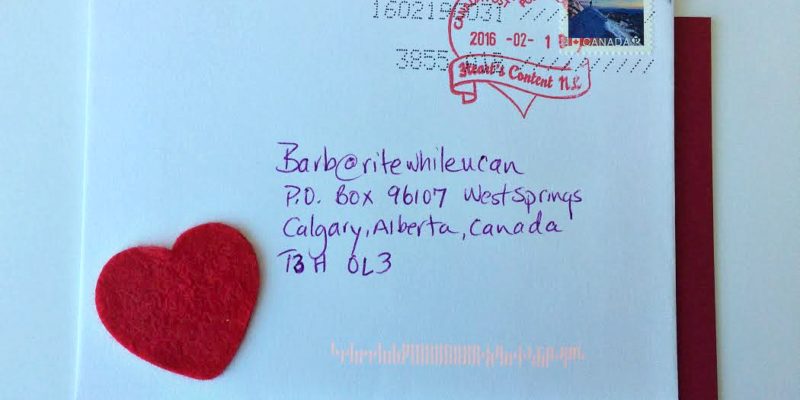 160219 031 //////////
2016 -02- 1
CANADA
3855
Heart's Content NL
Barb@ritewhileucan
P.O. Box 96107 WestSprings
Calgary, Alberta, Canada
T3H 0L3